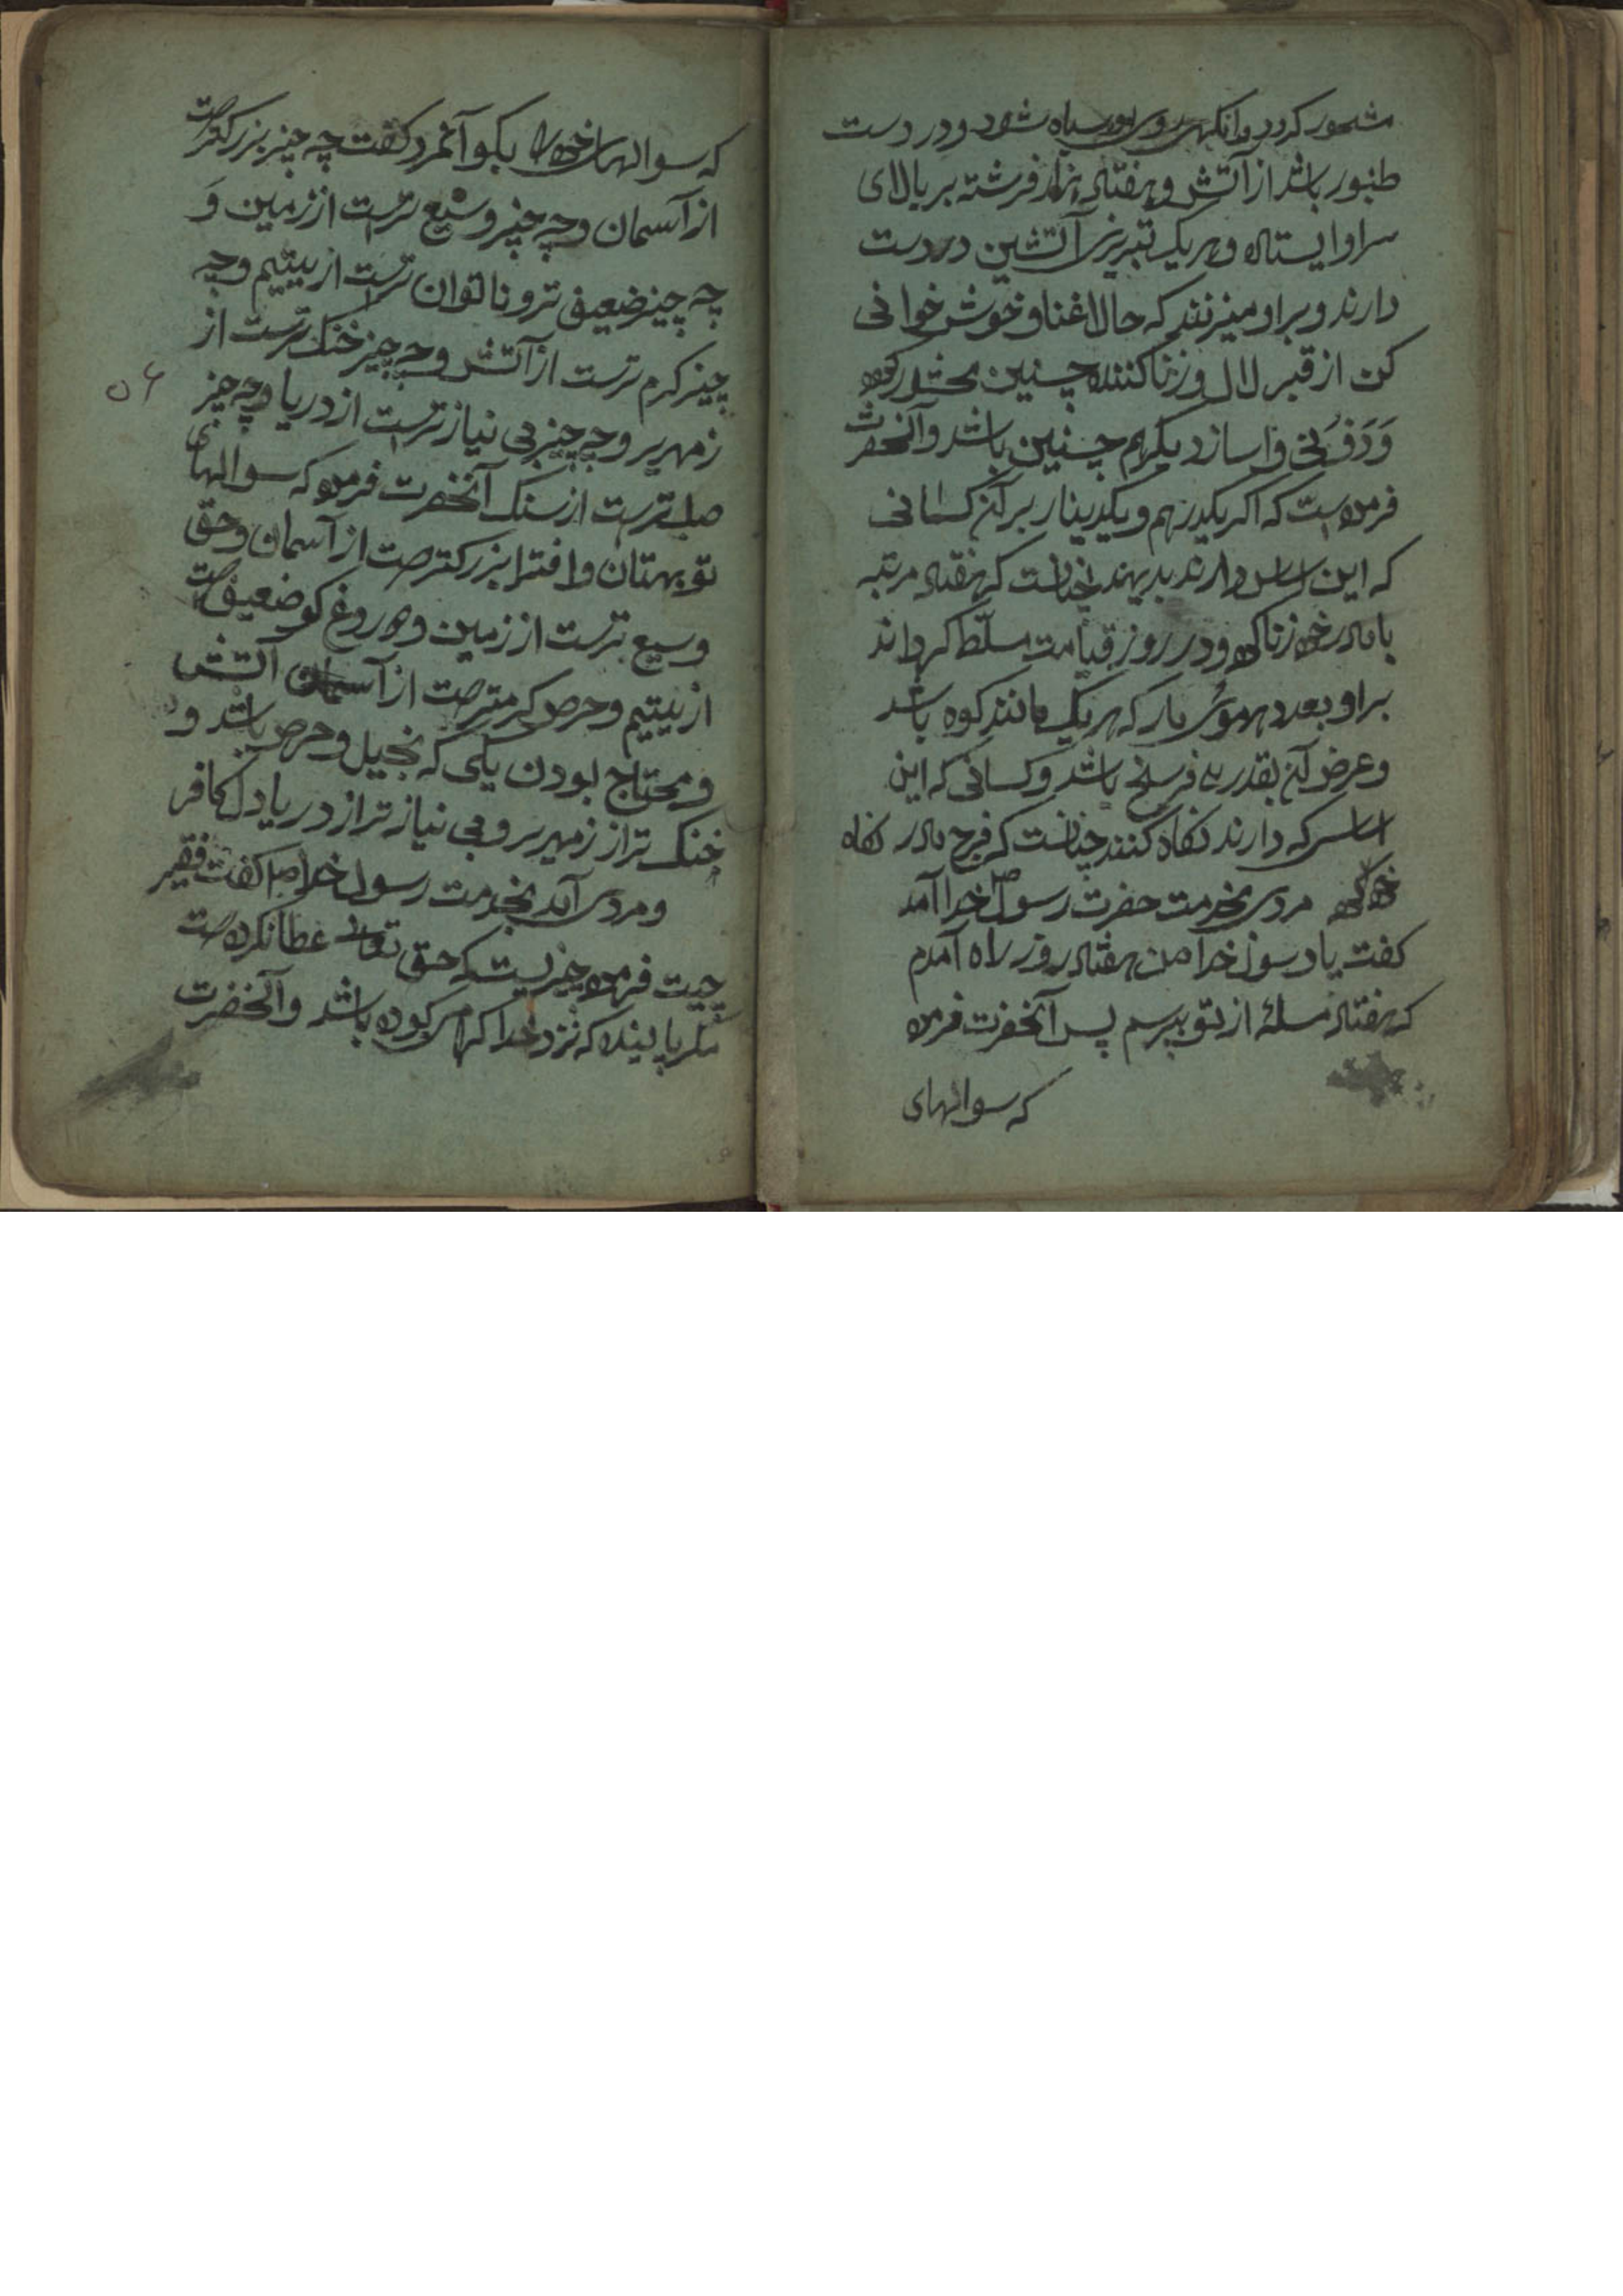 محشور گردد وانکهی روی او سیاه شود و در دست
طنبور باشد از آتش و هفتاد هزار فرشته بر بالای
سر او ایستاده و هر یک تبرزین آتشین در دست
دارند و بر او میزنند که حالا غنا و خوش خوانی
کن از قبر لال و زنا کننده چنین محشور کرده
وَدَف و نی و ساز دیکر هم چنین باشد و آنحضرت
فرموده است که اکر یکدرهم و یکدینار بر آن کسانی
که این اساس دارند بدیهند چنانست که هفتاد مرتبه
با مادر خود زنا کرده و در روز قیامت مسلّط کرداند
بر او بعدد هر موی مار که هر یک مانند کوه باشد
و عرض آن بقدر سه فرسخ باشد و کسانی که این
اساس که دارند نکاه کنند چنانست که فرج مادر نکاه
خود کرده مردی بخدمت حضرت رسول خدا آمد
کفت یا رسول خدا من هفتاد روز راه آمدم
که هفتاد مسلهٔ از تو بپرسم پس آنحضرت فرموده
که سوالهای
که سوالهای خود را بکو آنمرد کفت چه چیز بزرکتر است
از آسمان و چه چیز وسیع ترست از زمین وَ
چه چیز ضعیف تر و ناتوان ترست از یتیم و چه
چیز کرم ترست از آتش و چه چیز خنک ترست از
۵۶
زمهریر و چه چیز بی نیاز ترست از دریا و چه چیز
صلب ترست از سنک آنحضرت فرموده که سوالهای
تو بهتان و افترا بزرکتر است از آسمان و حق
وسیع ترست از زمین و دروغ کو ضعیف است
از یتیم و حرص کرمتر است از آسمان آتش
و محتاج بودن یکی که بخیل و حرص باشد و
خنک تر از زمهریر و بی نیاز تر از دریا دل کافر
و مردی آمد بخدمت رسول خدا ص کفت فقیر
چیت فرموده چیزیست که حق تعالی عطا نکرده است
مکر با بنده که نزد خدا کرامی بوده باشد و آنحضرت